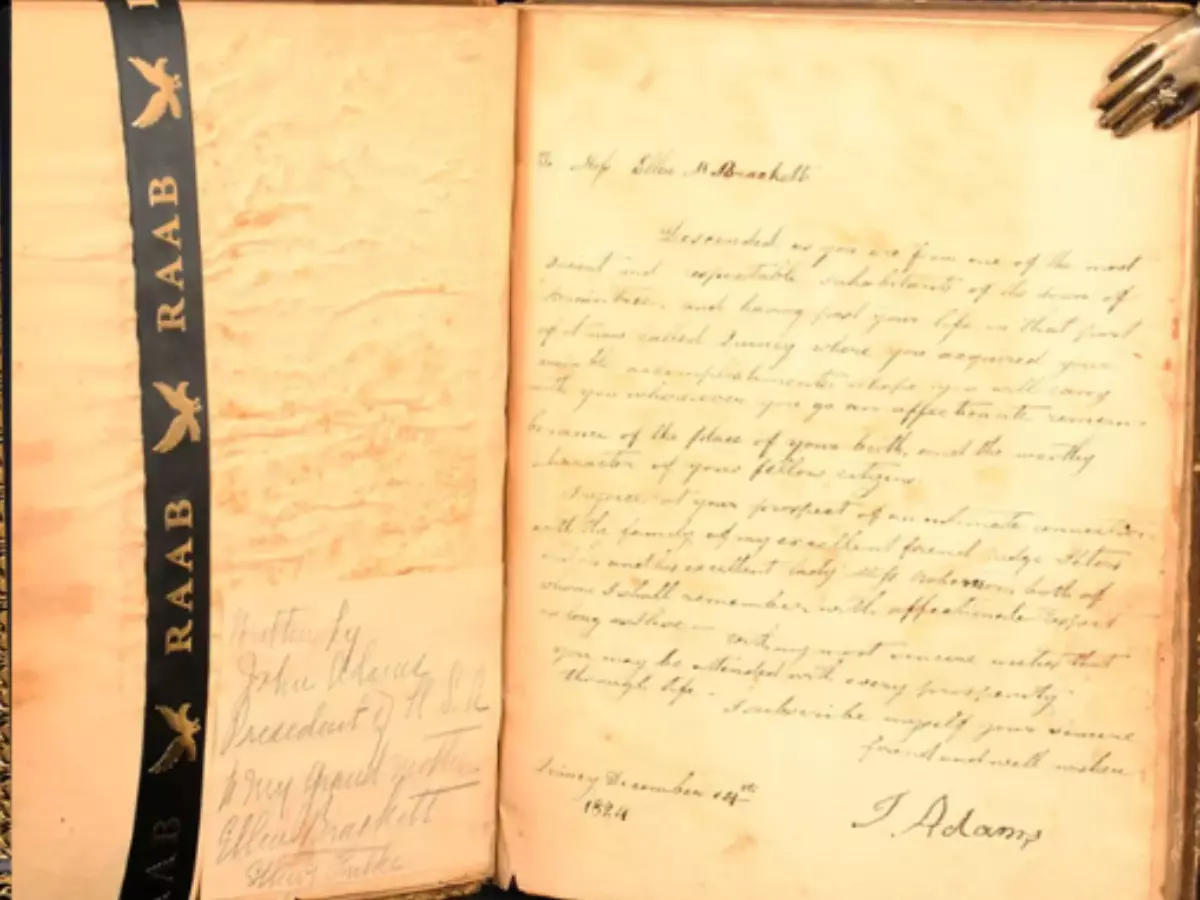 RAAB
RAAB
Written by
John Adams
President of U.S.A
to my grand mother
Ellen Brackett
To Miss Ellen M Brackett
Descended as you are from one of the most
ancient and respectable inhabitants of the town of
Braintree, and having past your life in that part
of it now called Quincy where you acquired your
amiable accomplishments I hope you will carry
with you wheresoever you go an affectionate remem-
berance of the place of your birth, and the worthy
character of your fellow citizens
I rejoice at your prospect of an intimate connection
with the family of my excellent friend Judge Peters
and his excellent lady Miss Robinson both of
whom I shall remember with affectionate respect
as long as I live — with my most sincere wishes that
you may be attended with every prosperity
through life. I subscribe myself your sincere
friend and well wisher
Quincy December
1824
J. Adams